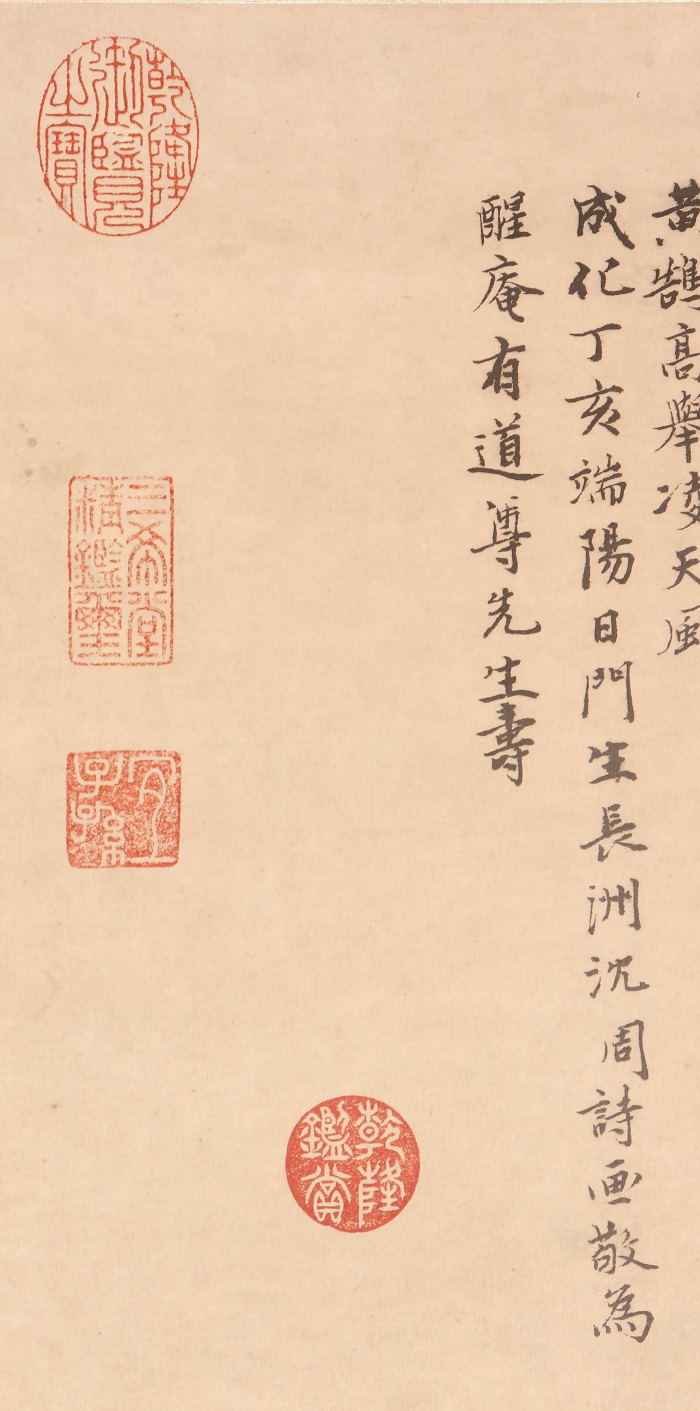 黃鵠高舉凌天風
成化丁亥端陽日門生長洲沈周詩画敬為
醒庵有道尊先生壽
乾隆鑑賞
乾隆御覽之寶
三希堂精鑑璽
宜子孫